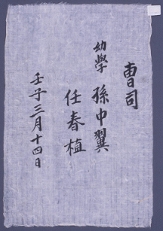 曹司
幼學 孫中翼
任春植
壬子三月十四日